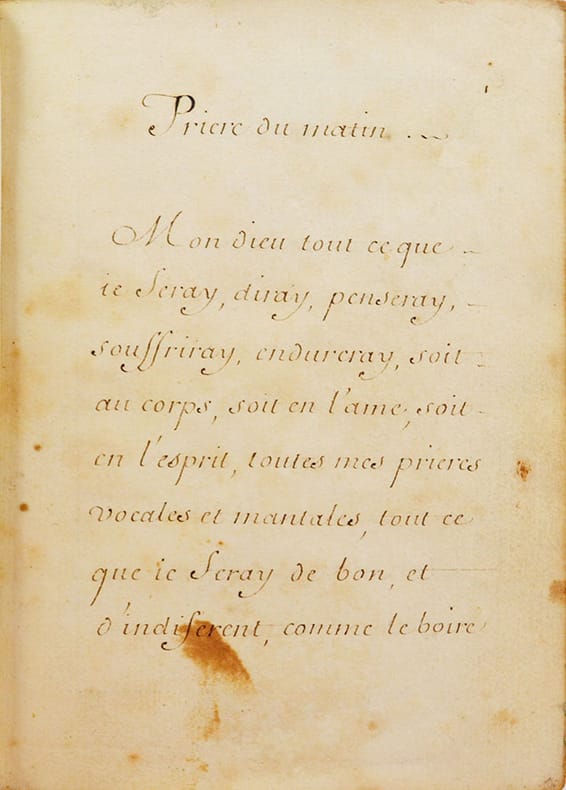 Priere du matin
Mon dieu tout ce que
ie feray, diray, penseray,
souffriray, endureray, soit
au corps, soit en l'ame, soit
en l'esprit, toutes mes prieres
vocales et mantales, tout ce
que ie feray de bon, et
d'indiferent, comme le boire